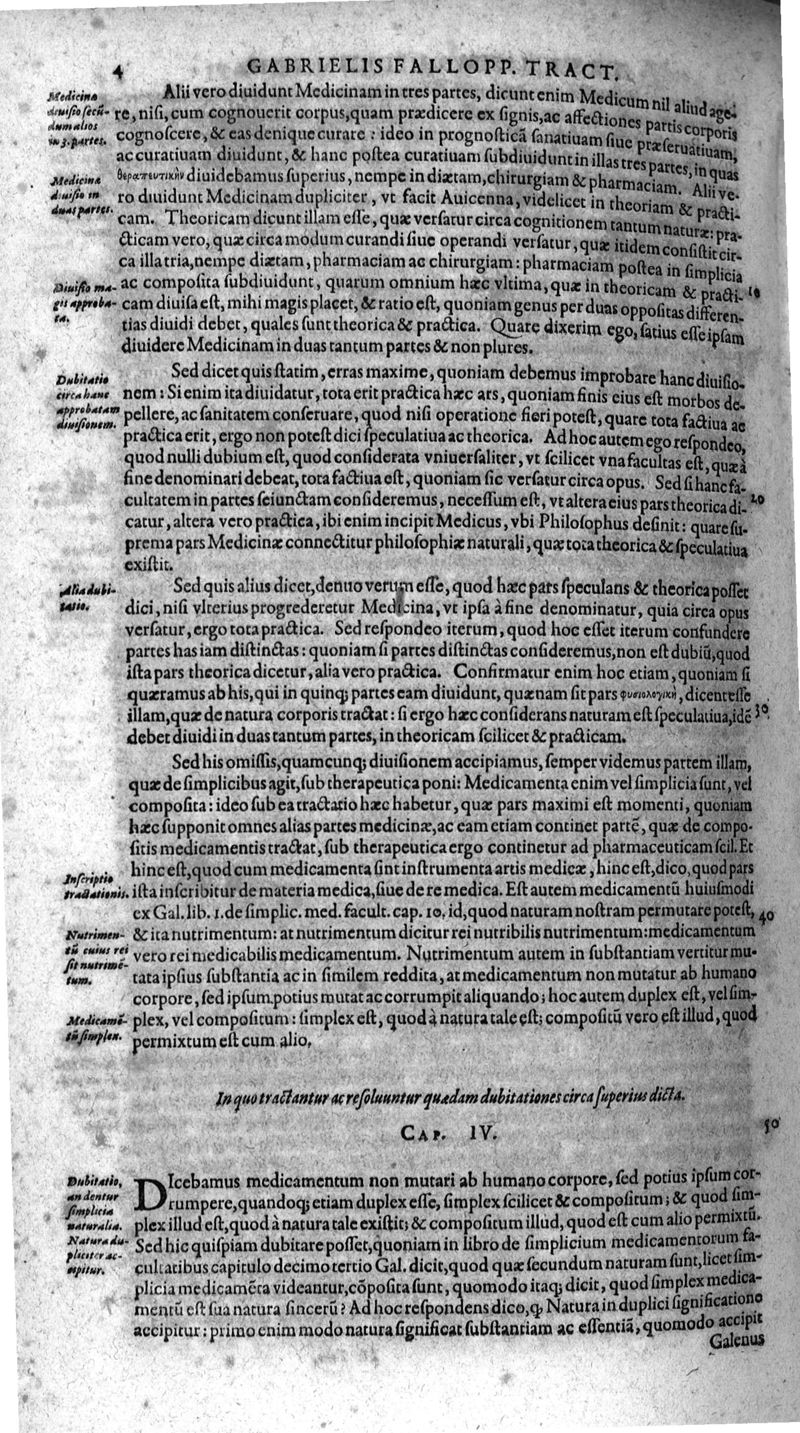 4 GABRIELIS FALLOPP. TRACT.
Medicinæ
diuiſio ſecũ-
dum alios
in 3. partes.
Alii vero diuidunt Medicinam in tres partes, dicunt enim Medicum nil aliud age-
re, niſi, cum cognouerit corpus, quam prædicere ex ſignis, ac affectiones partis corporis
cognoſcere, & eas denique curare: ideo in prognoſticã ſanatiuam ſiue præſeruatiuam,
ac curatiuam diuidunt, & hanc poſtea curatiuam ſubdiuidunt in illas tres partes, in quas
Medicinæ
diuiſio in
duas partes.
θεραπευτικὴν diuidebamus ſuperius, nempe in diætam, chirurgiam & pharmaciam. Alii ve-
ro diuidunt Medicinam dupliciter, vt facit Auicenna, videlicet in theoriam & practi-
cam. Theoricam dicunt illam eſſe, quæ verſatur circa cognitionem tantum naturæ: pra-
cticam vero, quæ circa modum curandi ſiue operandi verſatur, quæ itidem conſiſtit cir-
ca illa tria, nempe diætam, pharmaciam ac chirurgiam: pharmaciam poſtea in ſimplicia
Diuiſio ma-
gis approba-
ta.
ac compoſita ſubdiuidunt, quarum omnium hæc vltima, quæ in theoricam & practi- 10
cam diuiſa eſt, mihi magis placet, & ratio eſt, quoniam genus per duas oppoſitas differen-
tias diuidi debet, quales ſunt theorica & practica. Quare dixerim ego, ſatius eſſe ipſam
diuidere Medicinam in duas tantum partes & non plures.
Dubitatio
circa hanc
approbatam
diuiſionem.
Sed dicet quis ſtatim, erras maxime, quoniam debemus improbare hanc diuiſio-
nem: Si enim ita diuidatur, tota erit practica hæc ars, quoniam finis eius eſt morbos de-
pellere, ac ſanitatem conſeruare, quod niſi operatione fieri poteſt, quare tota factiua ac
practica erit, ergo non poteſt dici ſpeculatiua ac theorica. Ad hoc autem ego reſpondeo,
quod nulli dubium eſt, quod conſiderata vniuerſaliter, vt ſcilicet vna facultas eſt, quæ à
fine denominari debeat, tota factiua eſt, quoniam ſic verſatur circa opus. Sed ſi hanc fa-
cultatem in partes ſeiunctam conſideremus, neceſſum eſt, vt altera eius pars theorica di- 20
catur, altera vero practica, ibi enim incipit Medicus, vbi Philoſophus deſinit: quare ſu-
prema pars Medicinæ connectitur philoſophiæ naturali, quæ tota theorica & ſpeculatiua
exiſtit.
Alia dubi-
tatio.
Sed quis alius dicet, denuo verum eſſe, quod hæc pars ſpeculans & theorica poſſet
dici, niſi vlterius progrederetur Medicina, vt ipſa à fine denominatur, quia circa opus
verſatur, ergo tota practica. Sed reſpondeo iterum, quod hoc eſſet iterum confundere
partes has iam diſtinctas: quoniam ſi partes diſtinctas conſideremus, non eſt dubiũ, quod
iſta pars theorica dicetur, alia vero practica. Confirmatur enim hoc etiam, quoniam ſi
quæramus ab his, qui in quinq; partes eam diuidunt, quænam ſit pars φυσιολογικὴ, dicent eſſe
illam, quæ de natura corporis tractat: ſi ergo hæc conſiderans naturam eſt ſpeculatiua, idẽ 30
debet diuidi in duas tantum partes, in theoricam ſcilicet & practicam.
Sed his omiſſis, quamcunq; diuiſionem accipiamus, ſemper videmus partem illam,
quæ de ſimplicibus agit, ſub therapeutica poni: Medicamenta enim vel ſimplicia ſunt, vel
compoſita: ideo ſub ea tractatio hæc habetur, quæ pars maximi eſt momenti, quoniam
hæc ſupponit omnes alias partes medicinæ, ac eam etiam continet partẽ, quæ de compo-
ſitis medicamentis tractat, ſub therapeutica ergo continetur ad pharmaceuticam ſcil. Et
Inſcriptio
tractationis.
hinc eſt, quod cum medicamenta ſint inſtrumenta artis medicæ, hinc eſt, dico, quod pars
iſta inſcribitur de materia medica, ſiue de re medica. Eſt autem medicamentũ huiuſmodi
ex Gal. lib. 1. de ſimplic. med. facult. cap. 10. id, quod naturam noſtram permutare poteſt, 40
Nutrimen-
tũ cuius rei
ſit nutrimẽ-
tum.
& ita nutrimentum: at nutrimentum dicitur rei nutribilis nutrimentum: medicamentum
vero rei medicabilis medicamentum. Nutrimentum autem in ſubſtantiam vertitur mu-
tata ipſius ſubſtantia ac in ſimilem reddita, at medicamentum non mutatur ab humano
corpore, ſed ipſum potius mutat ac corrumpit aliquando; hoc autem duplex eſt, vel ſim-
Medicamẽ-
tũ ſimplex.
plex, vel compoſitum: ſimplex eſt, quod à natura tale eſt; compoſitũ vero eſt illud, quod
permixtum eſt cum alio.
In quo tractantur ac reſoluuntur quædam dubitationes circa ſuperius dicta.
CAP. IV. 50
Dubitatio,
an dentur
ſimplicia
naturalia.
Natura du-
pliciter ac-
cipitur.
DIcebamus medicamentum non mutari ab humano corpore, ſed potius ipſum cor-
rumpere, quandoq; etiam duplex eſſe, ſimplex ſcilicet & compoſitum; & quod ſim-
plex illud eſt, quod à natura tale exiſtit; & compoſitum illud, quod eſt cum alio permixtũ.
Sed hic quiſpiam dubitare poſſet, quoniam in libro de ſimplicium medicamentorum fa-
cultatibus capitulo decimo tertio Gal. dicit, quod quæ ſecundum naturam ſunt, licet ſim-
plicia medicamẽta videantur, cõpoſita ſunt, quomodo itaq; dicit, quod ſimplex medica-
mentũ eſt ſua natura ſincerũ? Ad hoc reſpondens dico, q, Natura in duplici ſignificatione
accipitur: primo enim modo natura ſignificat ſubſtantiam ac eſſentiã, quomodo accipit
Galenus